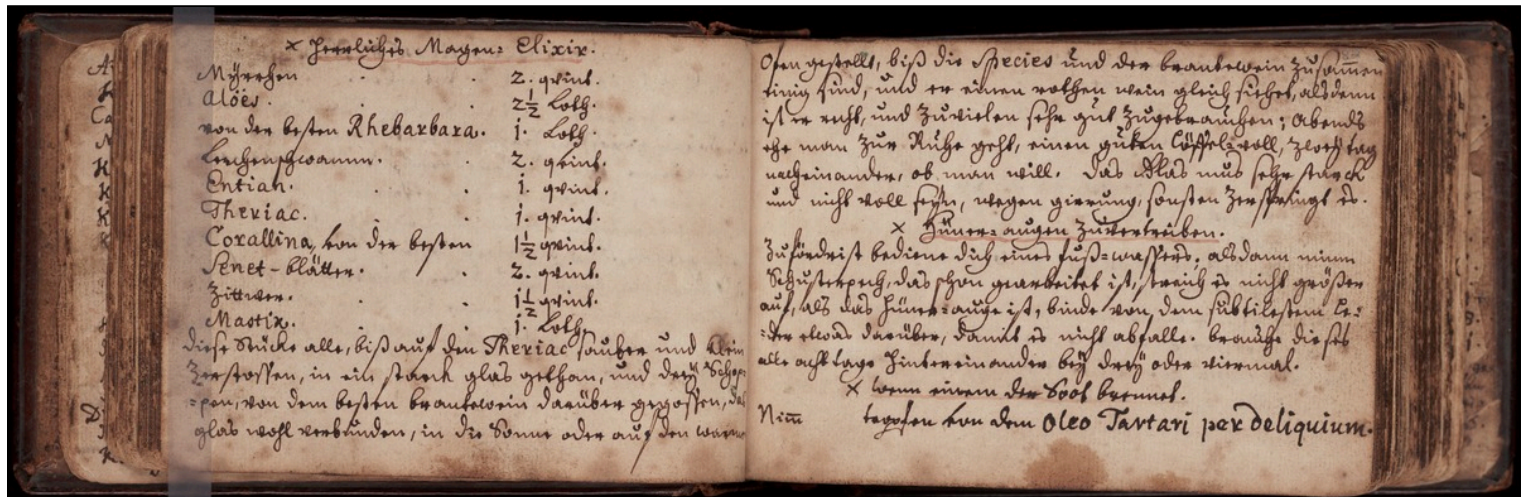 × Herrliches Magen= Elixir.
Mÿrrhen . . 2. qvint.
Aloës. . . 2½ Loth.
von der besten Rhebarbara. 1. Loth.
Lerchenschwamm. . 2. qvint.
Entian. . . 1. qvint.
Theriac. . . 1. qvint.
Corallina, von der besten 1½ qvint.
Senet-blätter. . 2. qvint.
Zittwer. . . 1½ qvint.
Mastix. . . 1. Loth,
diese Stücke alle, biß auf den Theriac sauber und klein
zerstossen, in ein starck glas gethan, und dreÿ Schop=
=pen, von dem besten brantewein darüber gegossen, das
glas wohl verbunden, in die Sonne oder auf den warmen
Ofen gestellt, biß die Species und der brantewein zusam̄en
einig sind, und er einen rothen wein gleich siehet, alsdenn
ist er recht, und zuvielen sehr gut zugebrauchen; Abends
ehe man zur Ruhe geht, einen guten Löffel=voll, zweÿ tag
nacheinander, ob man will. Das Glas mus sehr starck
und nicht voll seÿn, wegen gierung, sonsten zerspringt es.
× Hüner=augen zuvertreiben.
Zuförderist bediene dich eines fuß=wassers. alsdann nimm
Schusterpech, das schon gearbeitet ist, streich es nicht größer
auf, als das Hüner=auge ist, binde von dem subtilestem Le=
=der etwas darüber, damit es nicht abfalle. brauche dieses
alle acht tage hintereinander beÿ dreÿ oder viermal.
× wenn einem der Soot brennet.
Nim̄ tropfen von dem Oleo Tartari per deliquium.